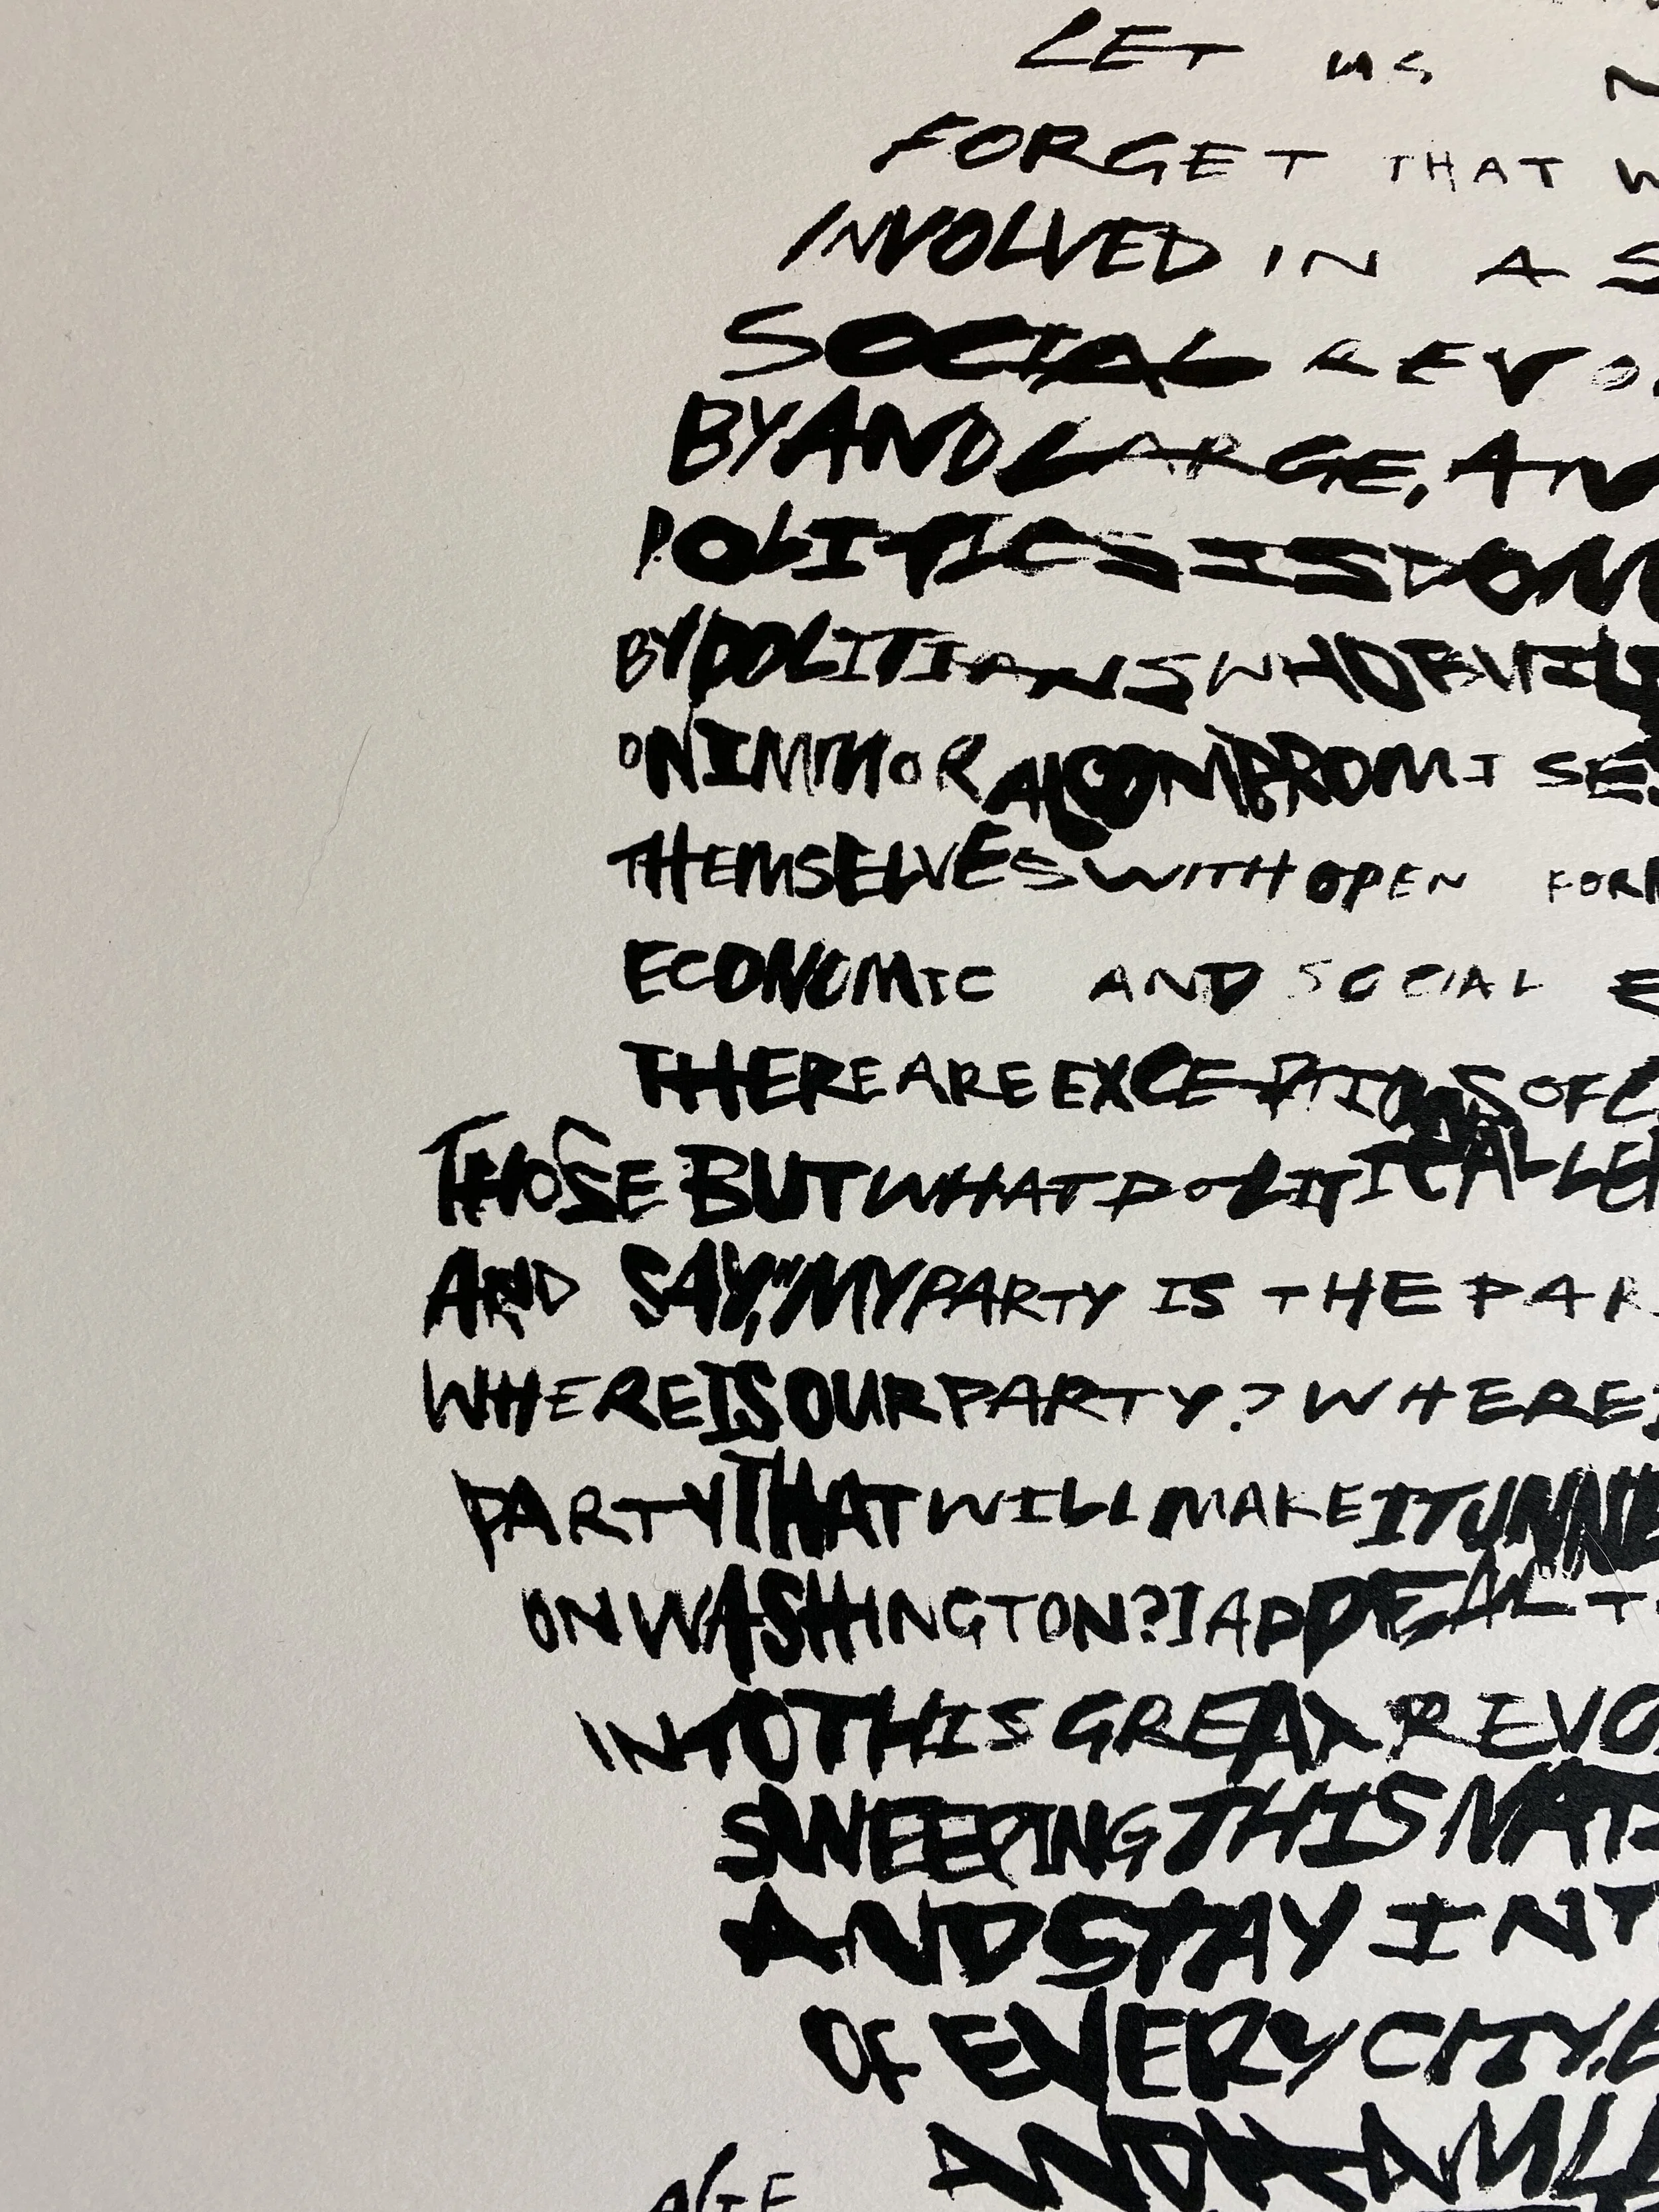 LET US N
FORGET THAT W
INVOLVED IN A S
SOCIAL REVO
BY AND LARGE, AN
POLITICS IS DOM
BY POLITIANS WHO BUIL
ON IMMORAL COMPROMISE
THEMSELVES WITH OPEN FOR
ECONOMIC AND SOCIAL E
THERE ARE EXCEPTIONS OF C
THOSE BUT WHAT POLITICAL LE
AND SAY, "MY PARTY IS THE PAR
WHERE IS OUR PARTY? WHERE I
PARTY THAT WILL MAKE IT UNNE
ON WASHINGTON? I APPEAL T
INTO THIS GREAT REVO
SWEEPING THIS NATI
AND STAY IN T
OF EVERY CITY, E
AND HAMLE
AGE